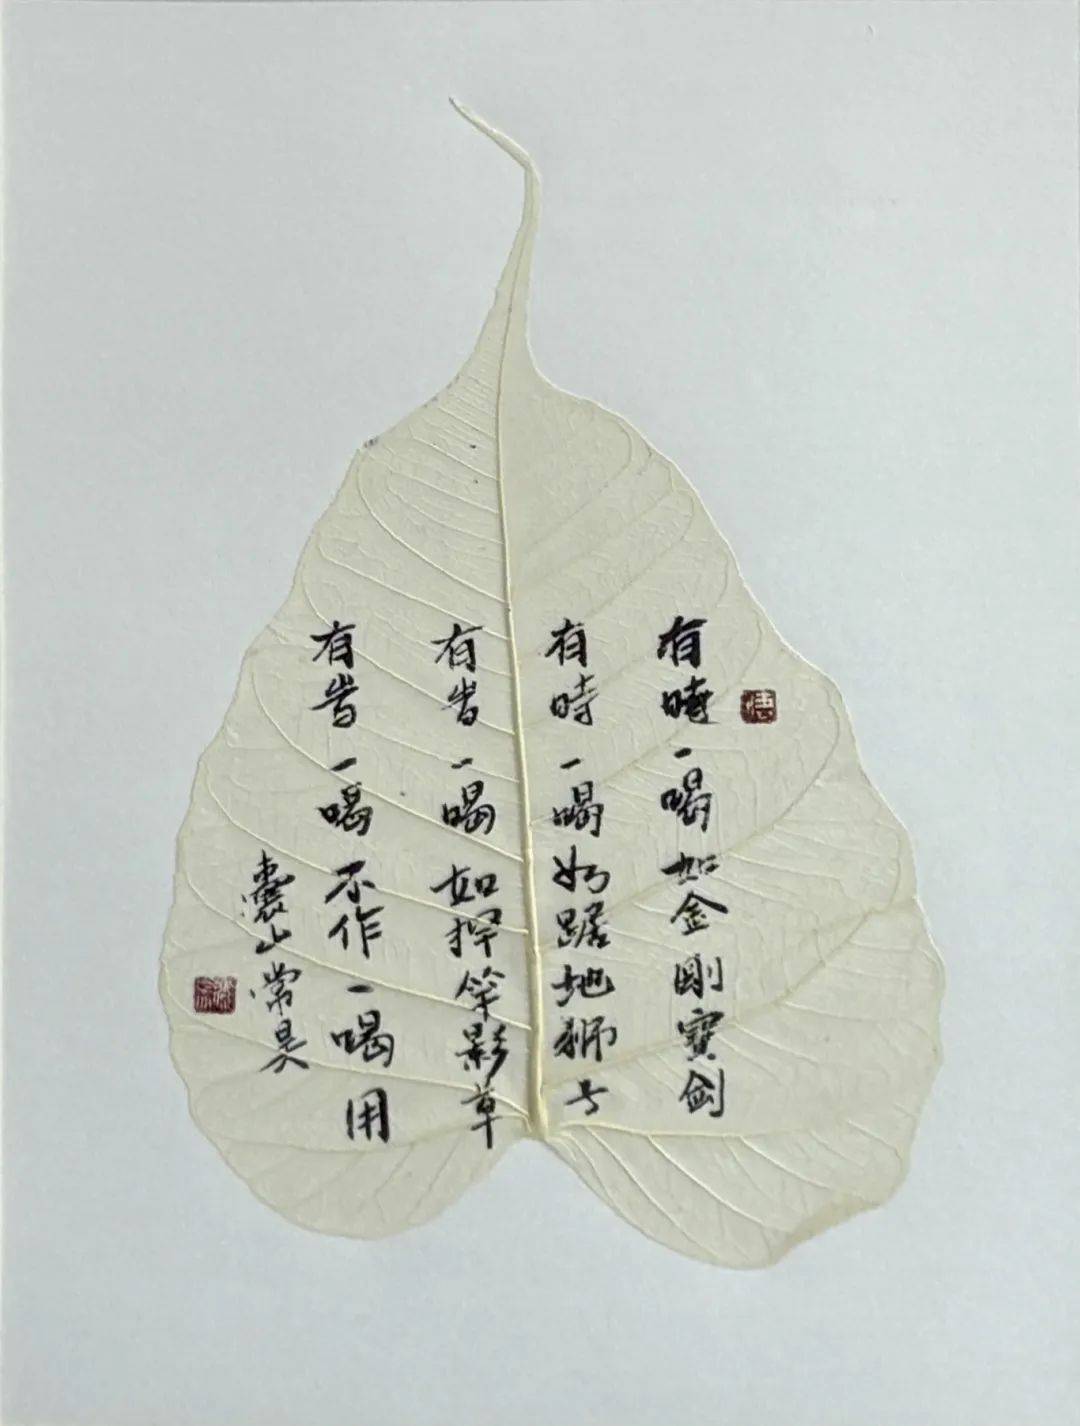 有時一喝如金剛寶劍
有時一喝如踞地獅子
有旹一喝如探竿影草
有旹一喝不作一喝用
囊山常